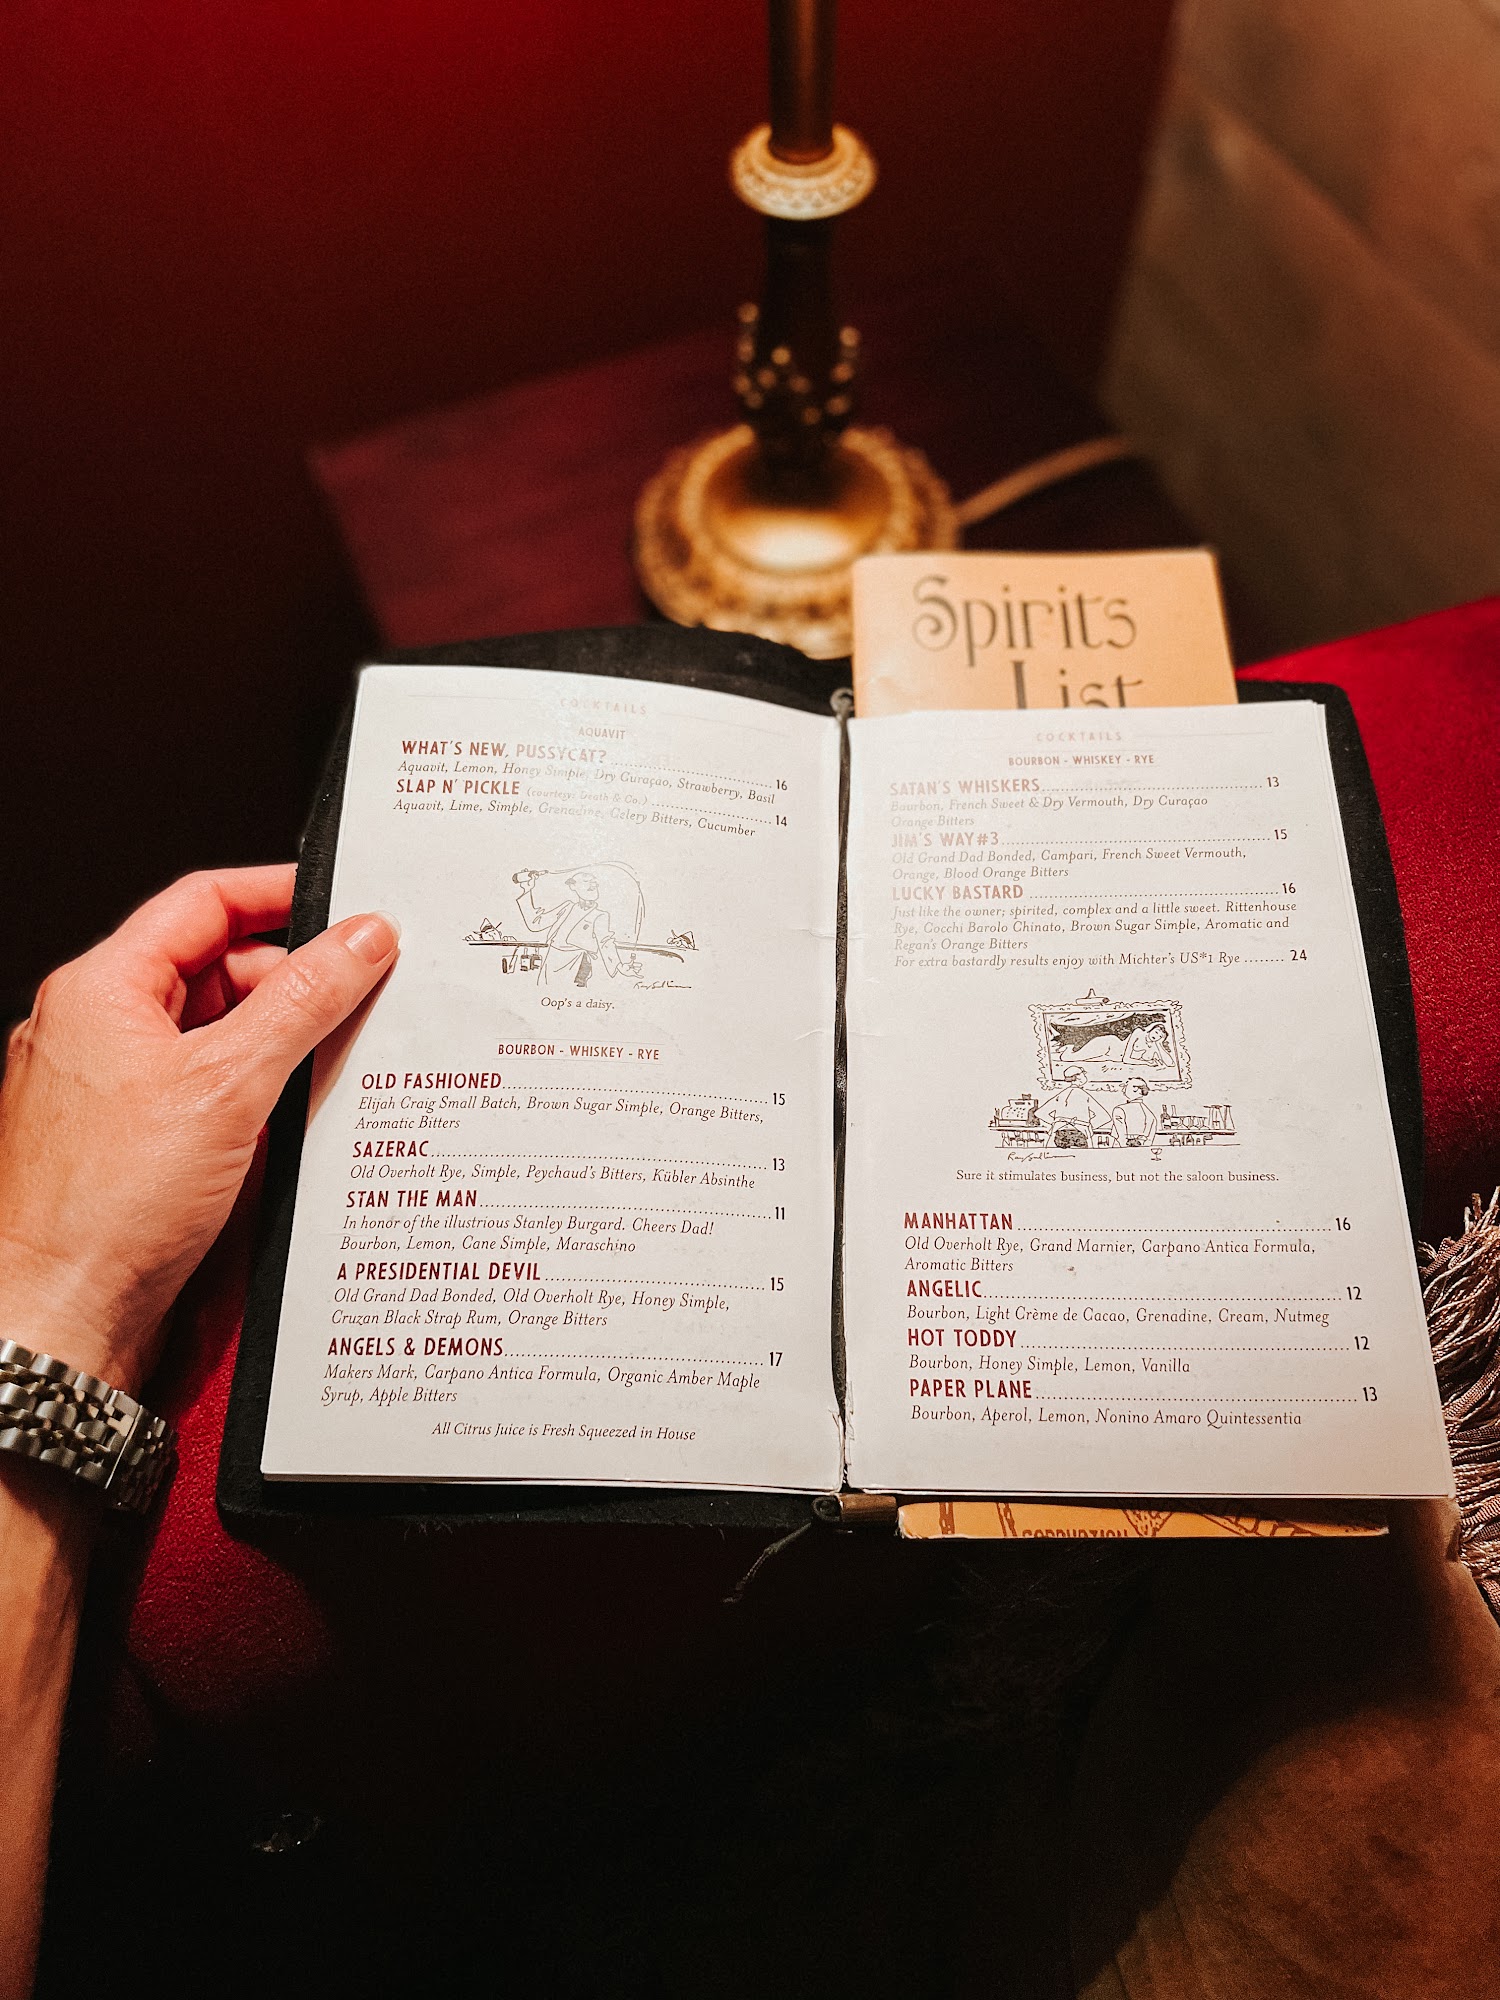 Spirits
List
COCKTAILS
AQUAVIT
WHAT'S NEW, PUSSYCAT? 16
Aquavit, Lemon, Honey Simple, Dry Curaçao, Strawberry, Basil
SLAP N' PICKLE (courtesy: Death & Co.) 14
Aquavit, Lime, Simple, Grenadine, Celery Bitters, Cucumber
Oop's a daisy.
BOURBON - WHISKEY - RYE
OLD FASHIONED 15
Elijah Craig Small Batch, Brown Sugar Simple, Orange Bitters,
Aromatic Bitters
SAZERAC 13
Old Overholt Rye, Simple, Peychaud's Bitters, Kübler Absinthe
STAN THE MAN 11
In honor of the illustrious Stanley Burgard. Cheers Dad!
Bourbon, Lemon, Cane Simple, Maraschino
A PRESIDENTIAL DEVIL 15
Old Grand Dad Bonded, Old Overholt Rye, Honey Simple,
Cruzan Black Strap Rum, Orange Bitters
ANGELS & DEMONS 17
Makers Mark, Carpano Antica Formula, Organic Amber Maple
Syrup, Apple Bitters
All Citrus Juice is Fresh Squeezed in House
COCKTAILS
BOURBON - WHISKEY - RYE
SATAN'S WHISKERS 13
Bourbon, French Sweet & Dry Vermouth, Dry Curaçao
Orange Bitters
JIM'S WAY#3 15
Old Grand Dad Bonded, Campari, French Sweet Vermouth,
Orange, Blood Orange Bitters
LUCKY BASTARD 16
Just like the owner; spirited, complex and a little sweet. Rittenhouse
Rye, Cocchi Barolo Chinato, Brown Sugar Simple, Aromatic and
Regan's Orange Bitters
For extra bastardly results enjoy with Michter's US*1 Rye ........ 24
Sure it stimulates business, but not the saloon business.
MANHATTAN 16
Old Overholt Rye, Grand Marnier, Carpano Antica Formula,
Aromatic Bitters
ANGELIC 12
Bourbon, Light Crème de Cacao, Grenadine, Cream, Nutmeg
HOT TODDY 12
Bourbon, Honey Simple, Lemon, Vanilla
PAPER PLANE 13
Bourbon, Aperol, Lemon, Nonino Amaro Quintessentia
CORRUPTION